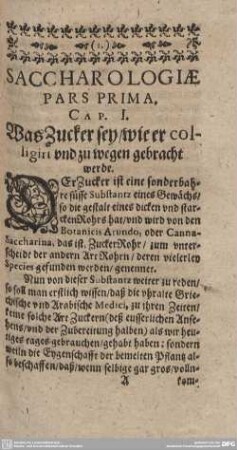 (1.)
SACCHAROLOGIÆ
PARS PRIMA.
CAP. I.
Was Zucker sey/ wie er col-
ligirt vnd zu wegen gebracht
werde.
DEr Zucker ist eine sonderbah-
re süsse Substantz eines Gewächs/
so die gestalt eines dicken vnd star-
cken Rohrs hat/ vnd wird von den
Botanicis Arundo, oder Canna
Saccharina, das ist, Zucker Rohr/ zum vnter-
scheide der andern Art Rohren/ deren vielerley
Species gefunden werden/ genennet.
Nun von dieser Substantz weiter zu reden/
so soll man erstlich wissen/ daß die vhralte Grie-
chische vnd Arabische Medici, zu ihren Zeiten/
keine solche Art Zuckern (deß eusserlichen Anse-
hens/ vnd der Zubereitung halben) als wir heu-
tiges tages gebrauchen/ gehabt haben: sondern
weiln die Eygenschafft der bemelten Pflantz al-
so beschaffen/ daß/ wenn selbige gar gros/ volln-
A kom-